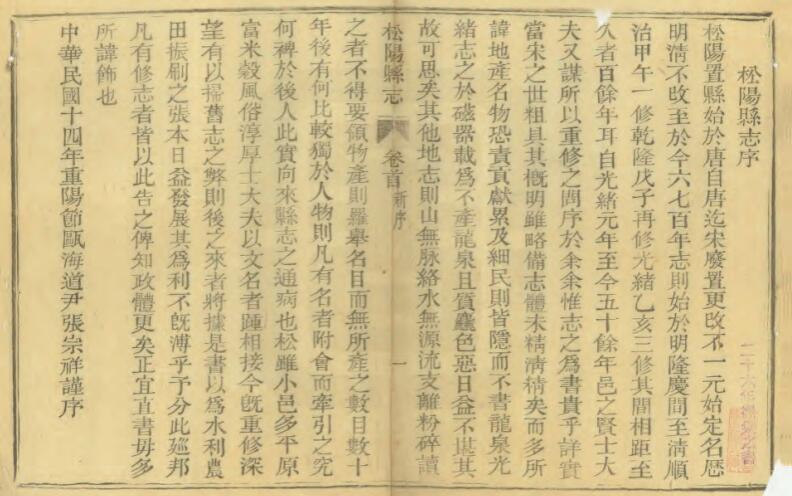 松陽縣志序
松陽置縣始於唐自唐迄宋廢置更改不一元始定名歷
明淸不改至於今六七百年志則始於明隆慶間至淸順
治甲午一修乾隆戊子再修光緖乙亥三修其間相距至
久者百餘年耳自光緖元年至今五十餘年邑之賢士大
夫又謀所以重修之問序於余余惟志之爲書貴乎詳實
當宋之世粗具其槪明雖略備志體未精淸精矣而多所
諱地產名物恐責貢獻累及細民則皆隱而不書龍泉光
緖志之於磁器載爲不產龍泉且質麤色惡日益不堪其
故可思矣其他地志則山無脉絡水無源流支離粉碎讀
松陽縣志 卷首 新序 一
之者不得要領物產則羅舉名目而無所產之數目數十
年後有何比較獨於人物則凡有名者附會而牽引之究
何裨於後人此實向來縣志之通病也松雖小邑多平原
富米穀風俗淳厚士大夫以文名者踵相接今旣重修深
望有以掃舊志之弊則後之來者將據是書以爲水利農
田振刷之張本日益發展其爲利不旣溥乎予分此廵邦
凡有修志者皆以此告之俾知政體更矣正宜直書毋多
所諱飾也
中華民國十四年重陽節甌海道尹張宗祥謹序